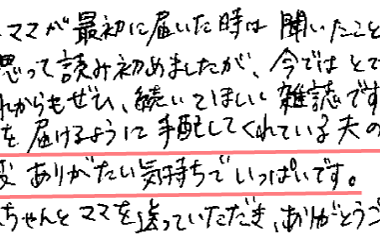 ママが最初に届いた時は 聞いたこと
思って読み初めましたが、今ではとて
れからもぜひ、続いてほしい 雑誌です
を届けるように手配してくれている夫の
ありがたい気持ちでいっぱいです。
ちゃんとママを送っていただき、ありがとうご